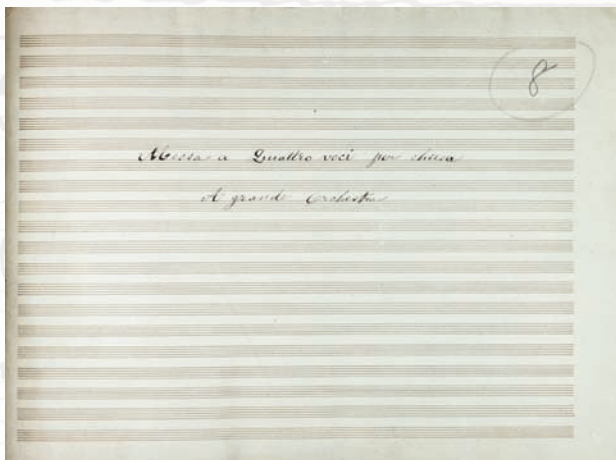 8
Messa a Quattro voci per chiesa
A grande Orchestra